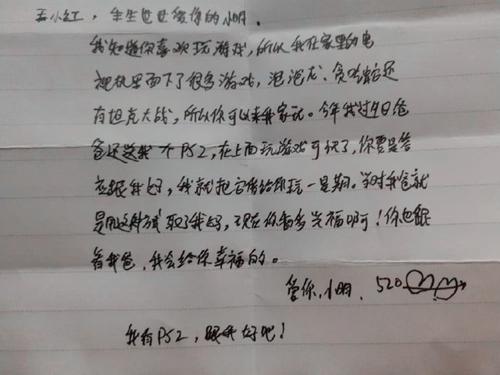 王小红，生生世世爱你的小明。
我知道你喜欢玩游戏，所以我在家里的电
视机里面下了很多游戏，泡泡龙、贪吃蛇还
有坦克大战，所以你可以来我家玩。今年我过生日爸
爸还送我一个PS2，在上面玩游戏可玩了，你要是答
应跟我好，我就把它借给你玩一星期。当时我爸就
是用这种方式取了我妈，现在你看多幸福啊！你也跟
着我爸，我会给你幸福的。
爱你，小明，520
我有PS2，跟我好吧！